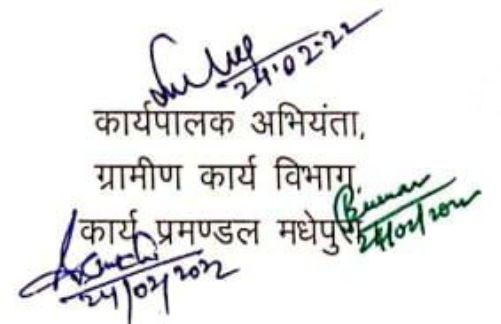 24.02.22
कार्यपालक अभियंता,
ग्रामीण कार्य विभाग
कार्य प्रमण्डल मधेपुरा
24/02/2022
24/02/2022